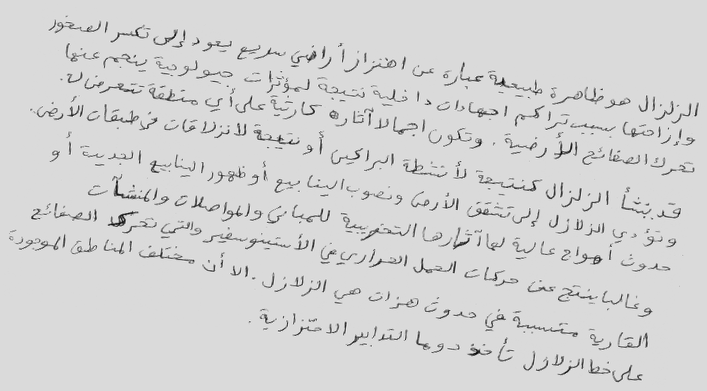 الزلزال هو ظاهرة طبيعية عبارة عن اهتزاز أراضي سريع يعود إلى تكسر الصخور
وإزاحتها بسبب تراكم اجهادات داخلية نتيجة لمؤثرات جيولوجية ينجم عنها
تحرك الصفائح الأرضية . وتكون اجمالا آثاره كارثية على أي منطقة تتعرض له.
قد ينشأ الزلزال كنتيجة لأنشطة البراكين أو نتيجة لانزلاقات في طبقات الأرض.
وتؤدي الزلازل إلى تشقق الأرض ونضوب الينابيع أو ظهور الينابيع الجديدة أو
حدوث أمواج عالية لها آثارها التخريبية للمباني والمواصلات والمنشآت
وغالبا ينتج عن حركات الحمل الحراري في الأستينوسفير والتي تحرك الصفائح
القارية متسببة في حدوث هزات هي الزلازل . الا أن مختلف المناطق الموجودة
على خط الزلازل تأخذ دوما التدابير الاحتزازية .